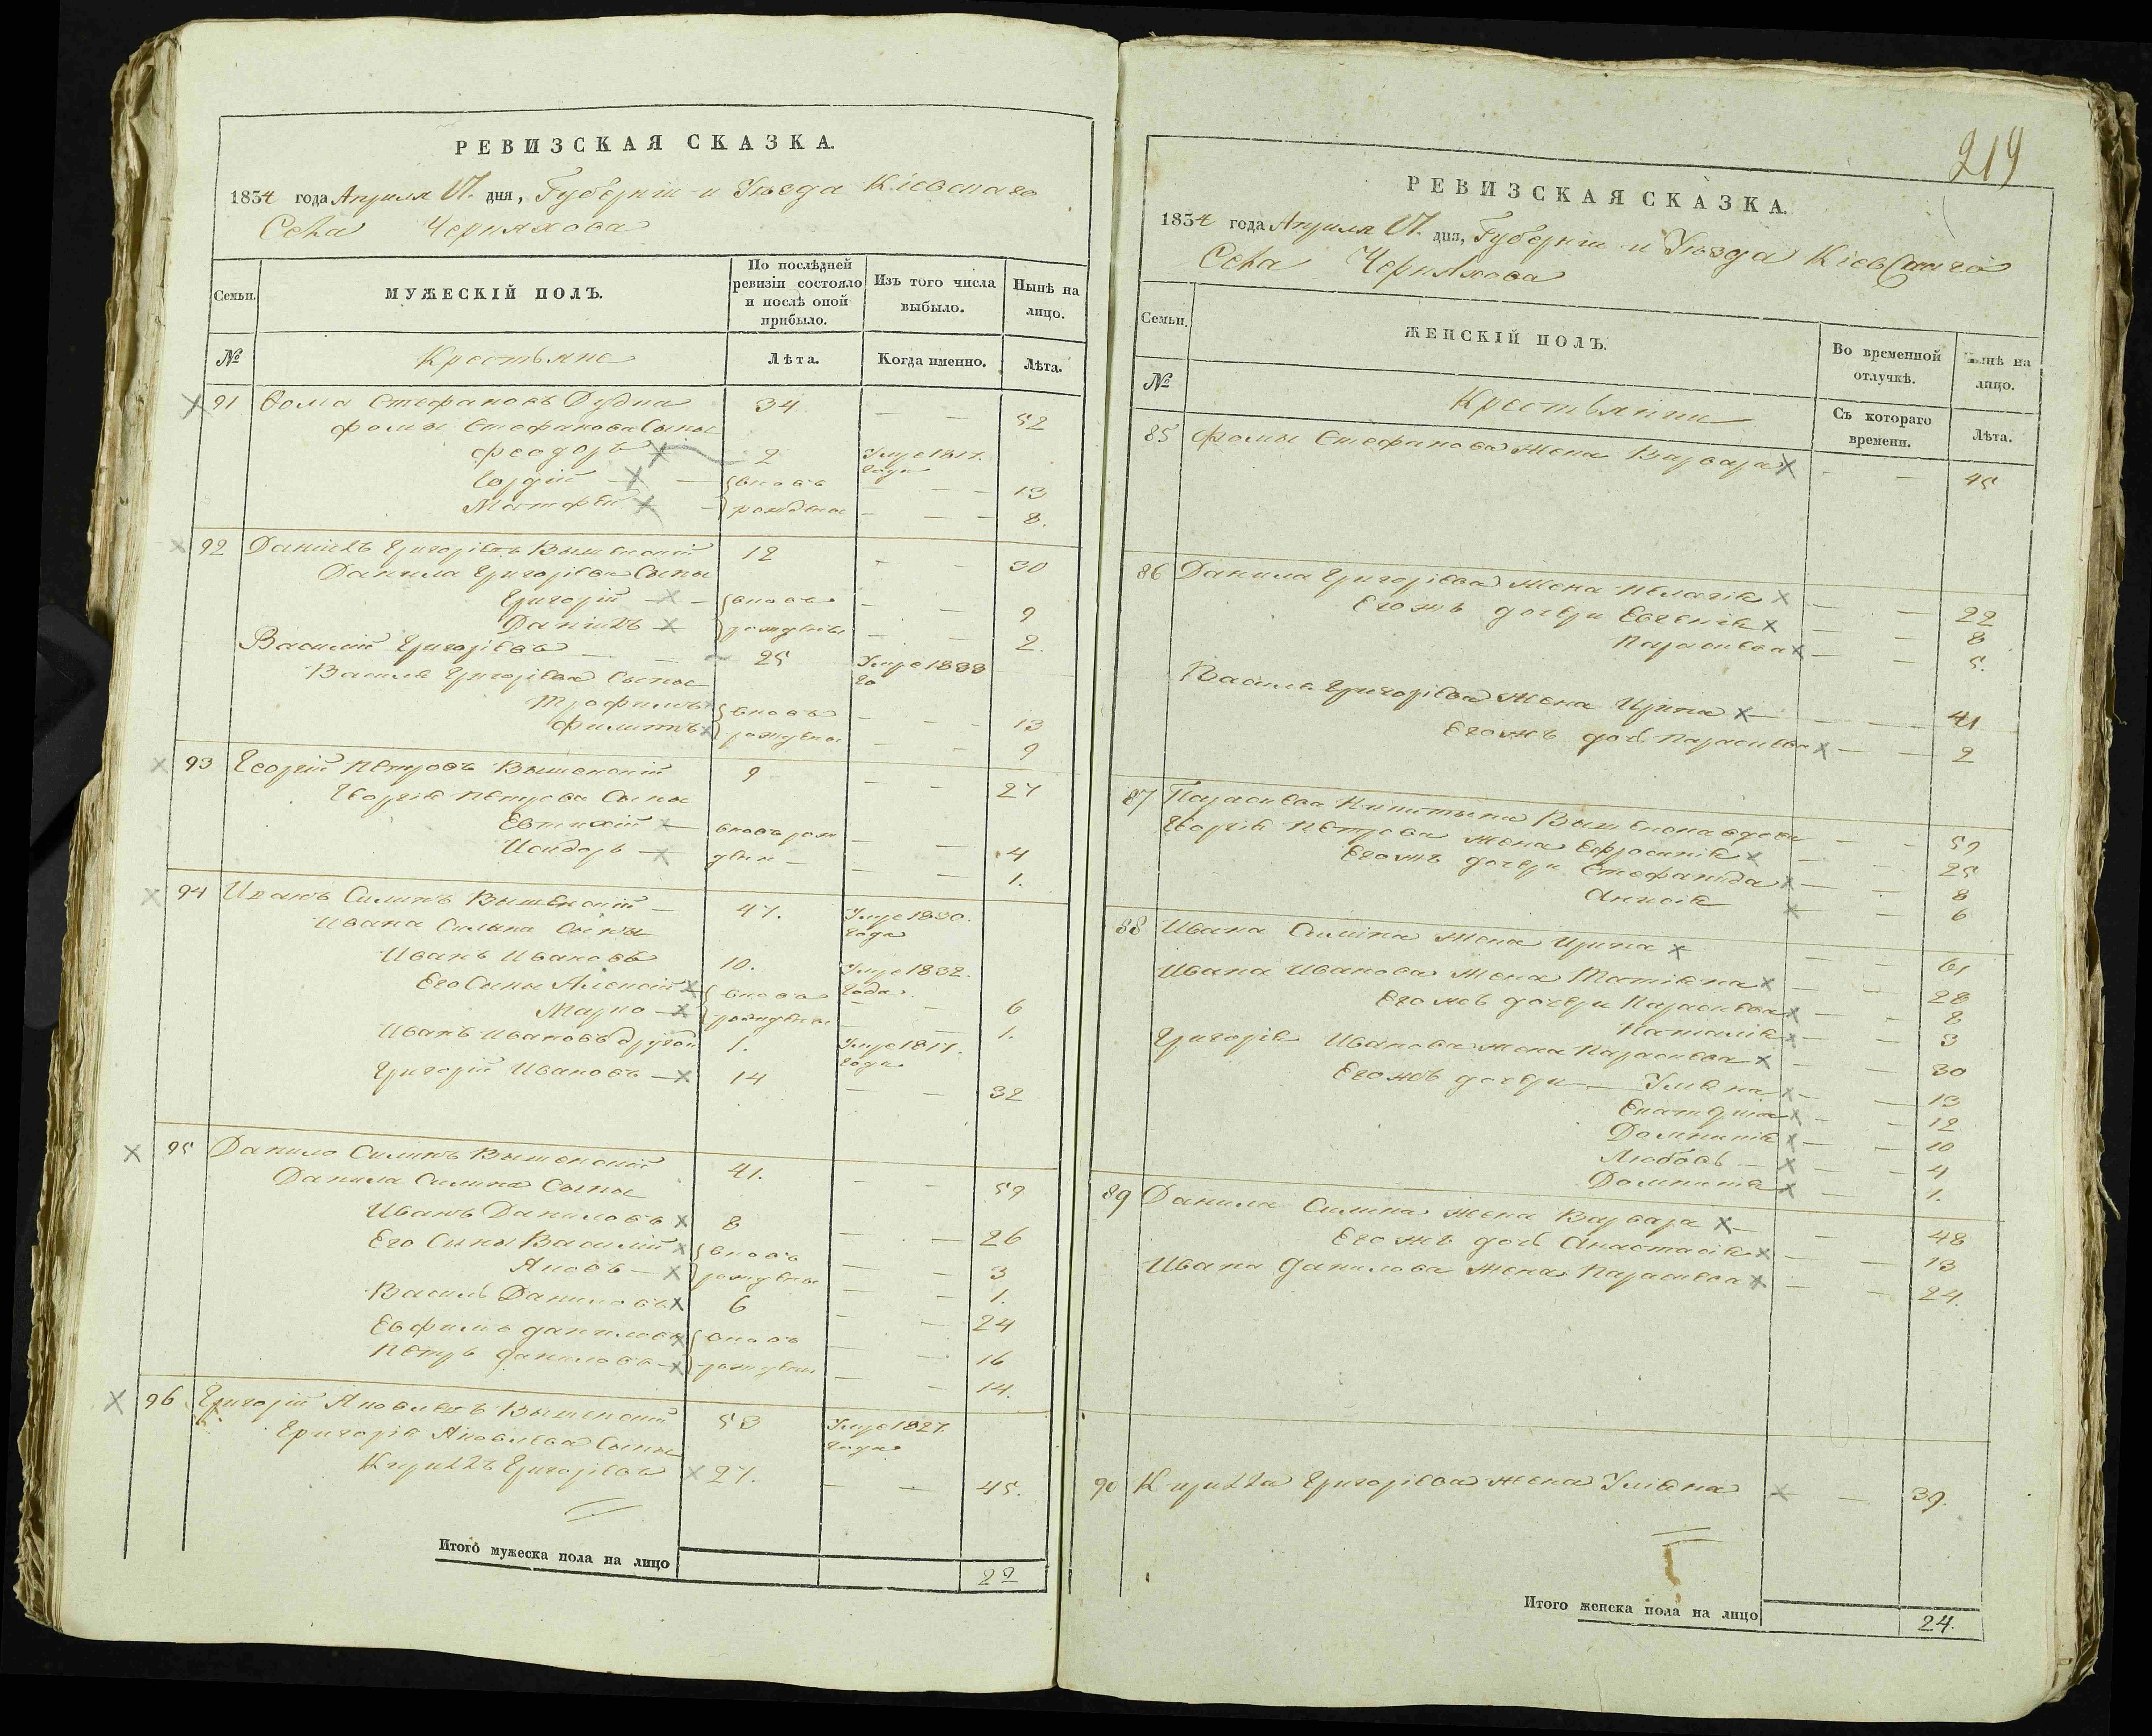 РЕВИЗСКАЯ СКАЗКА.
1834 года Апреля 17. дня, Губерніи и Уезда Кіевскаго
Села Черняхова
Семьи.
МУЖЕСКІЙ ПОЛЪ.
По послѣдней ревизіи состояло и послѣ оной прибыло.
Изъ того числа выбыло.
Нынѣ на лицо.
№ Крестьяне Лѣта. Когда именно. Лѣта.
91 Фома Стефановъ Дудка 34 — — 52
Фомы Стефанова Сыны
Феодоръ 2 Умре 1817. года
Гордій — вновь — — — 13
Матфей — рождены — — — 8.
92 Даніилъ Григоріевъ Вышенскій 12 - — 30
Данила Григоріева Сыны
Григорій — вновь — — 9
Даніилъ — рождены — — 2.
Василій Григоріевъ — — 25 Умре 1833 го
Василя Григоріева Сыны
Трофимъ вновь — — — 13
Филиппъ рождены — — 9
93 Георгій Петровъ Вышенскій 9 — — 27
Георгія Петрова Сыны
Евтихій — вновь рож — — 4
Исидоръ — дени — — — 1.
94 Иванъ Силинъ Вышенскій — 47. Умре 1830. года
Ивана Силина Сыны
Иванъ Ивановъ 10. Умре 1832. года
Его Сыны Алексій вновь — — 6
Марко — рождены — — 1.
Иванъ Ивановъ другой 1. Умре 1817. года
Григорій Ивановъ — 14 — — 32
95 Данило Силинъ Вышенскій 41. — — 59
Данила Силина Сыны
Иванъ Даниловъ 8 — — 26
Его Сыны Василій вновь — — 3
Яковъ — рождены — — 1.
Василь Даниловъ 6 — — 24
Евфимъ Даниловъ вновь — 16
Петръ Даниловъ — рождены — — 14.
96 Григорій Яковлевъ Вышенскій 53 Умре 1827. года
Григорія Яковлева Сынъ
Кириллъ Григоріевъ 27. — — 45.
Итого мужеска пола на лицо 22
219
РЕВИЗСКАЯ СКАЗКА.
1834 года Апреля 17. дня, Губерніи и Уезда Кіевскаго
Села Черняхова
Семьи.
ЖЕНСКІЙ ПОЛЪ.
Во временной отлучкѣ.
Нынѣ на лицо.
№ Крестьянки Съ котораго времени. Лѣта.
85 Фомы Стефанова Жена Варвара - — 45
86 Данила Григоріева Жена Пелагія — — 22
Его жъ дочери Евгенія — — 8
Параскева — — 5.
Василя Григоріева Жена Ирина — — — 41
Его жъ дочь Параскева — — 2
87 Параскева Никитина Вышенска вдова — - 59
Георгія Петрова Жена Ефросинія — — 25
Его жъ дочери Стефанида — — 8
Анисія — - 6
88 Ивана Силина Жена Ирина — — 61
Ивана Иванова Жена Татіяна — — 28
Его жъ дочери Параскева — - 8
Наталія — — 3
Григорія Иванова жена Параскева — — 30
Его жъ дочери — Уліяна — — 13
Екатерина — — 12
Домникія — — 10
Любовь — — — 4
— 1.
89 Данила Силина жена Варвара — — 48
Его жъ дочь Анастасія — — 13
Ивана Данилова Жена Параскева — — 24.
90 Кирилла Григоріева жена Уліяна — 39.
Итого женска пола на лицо 24.